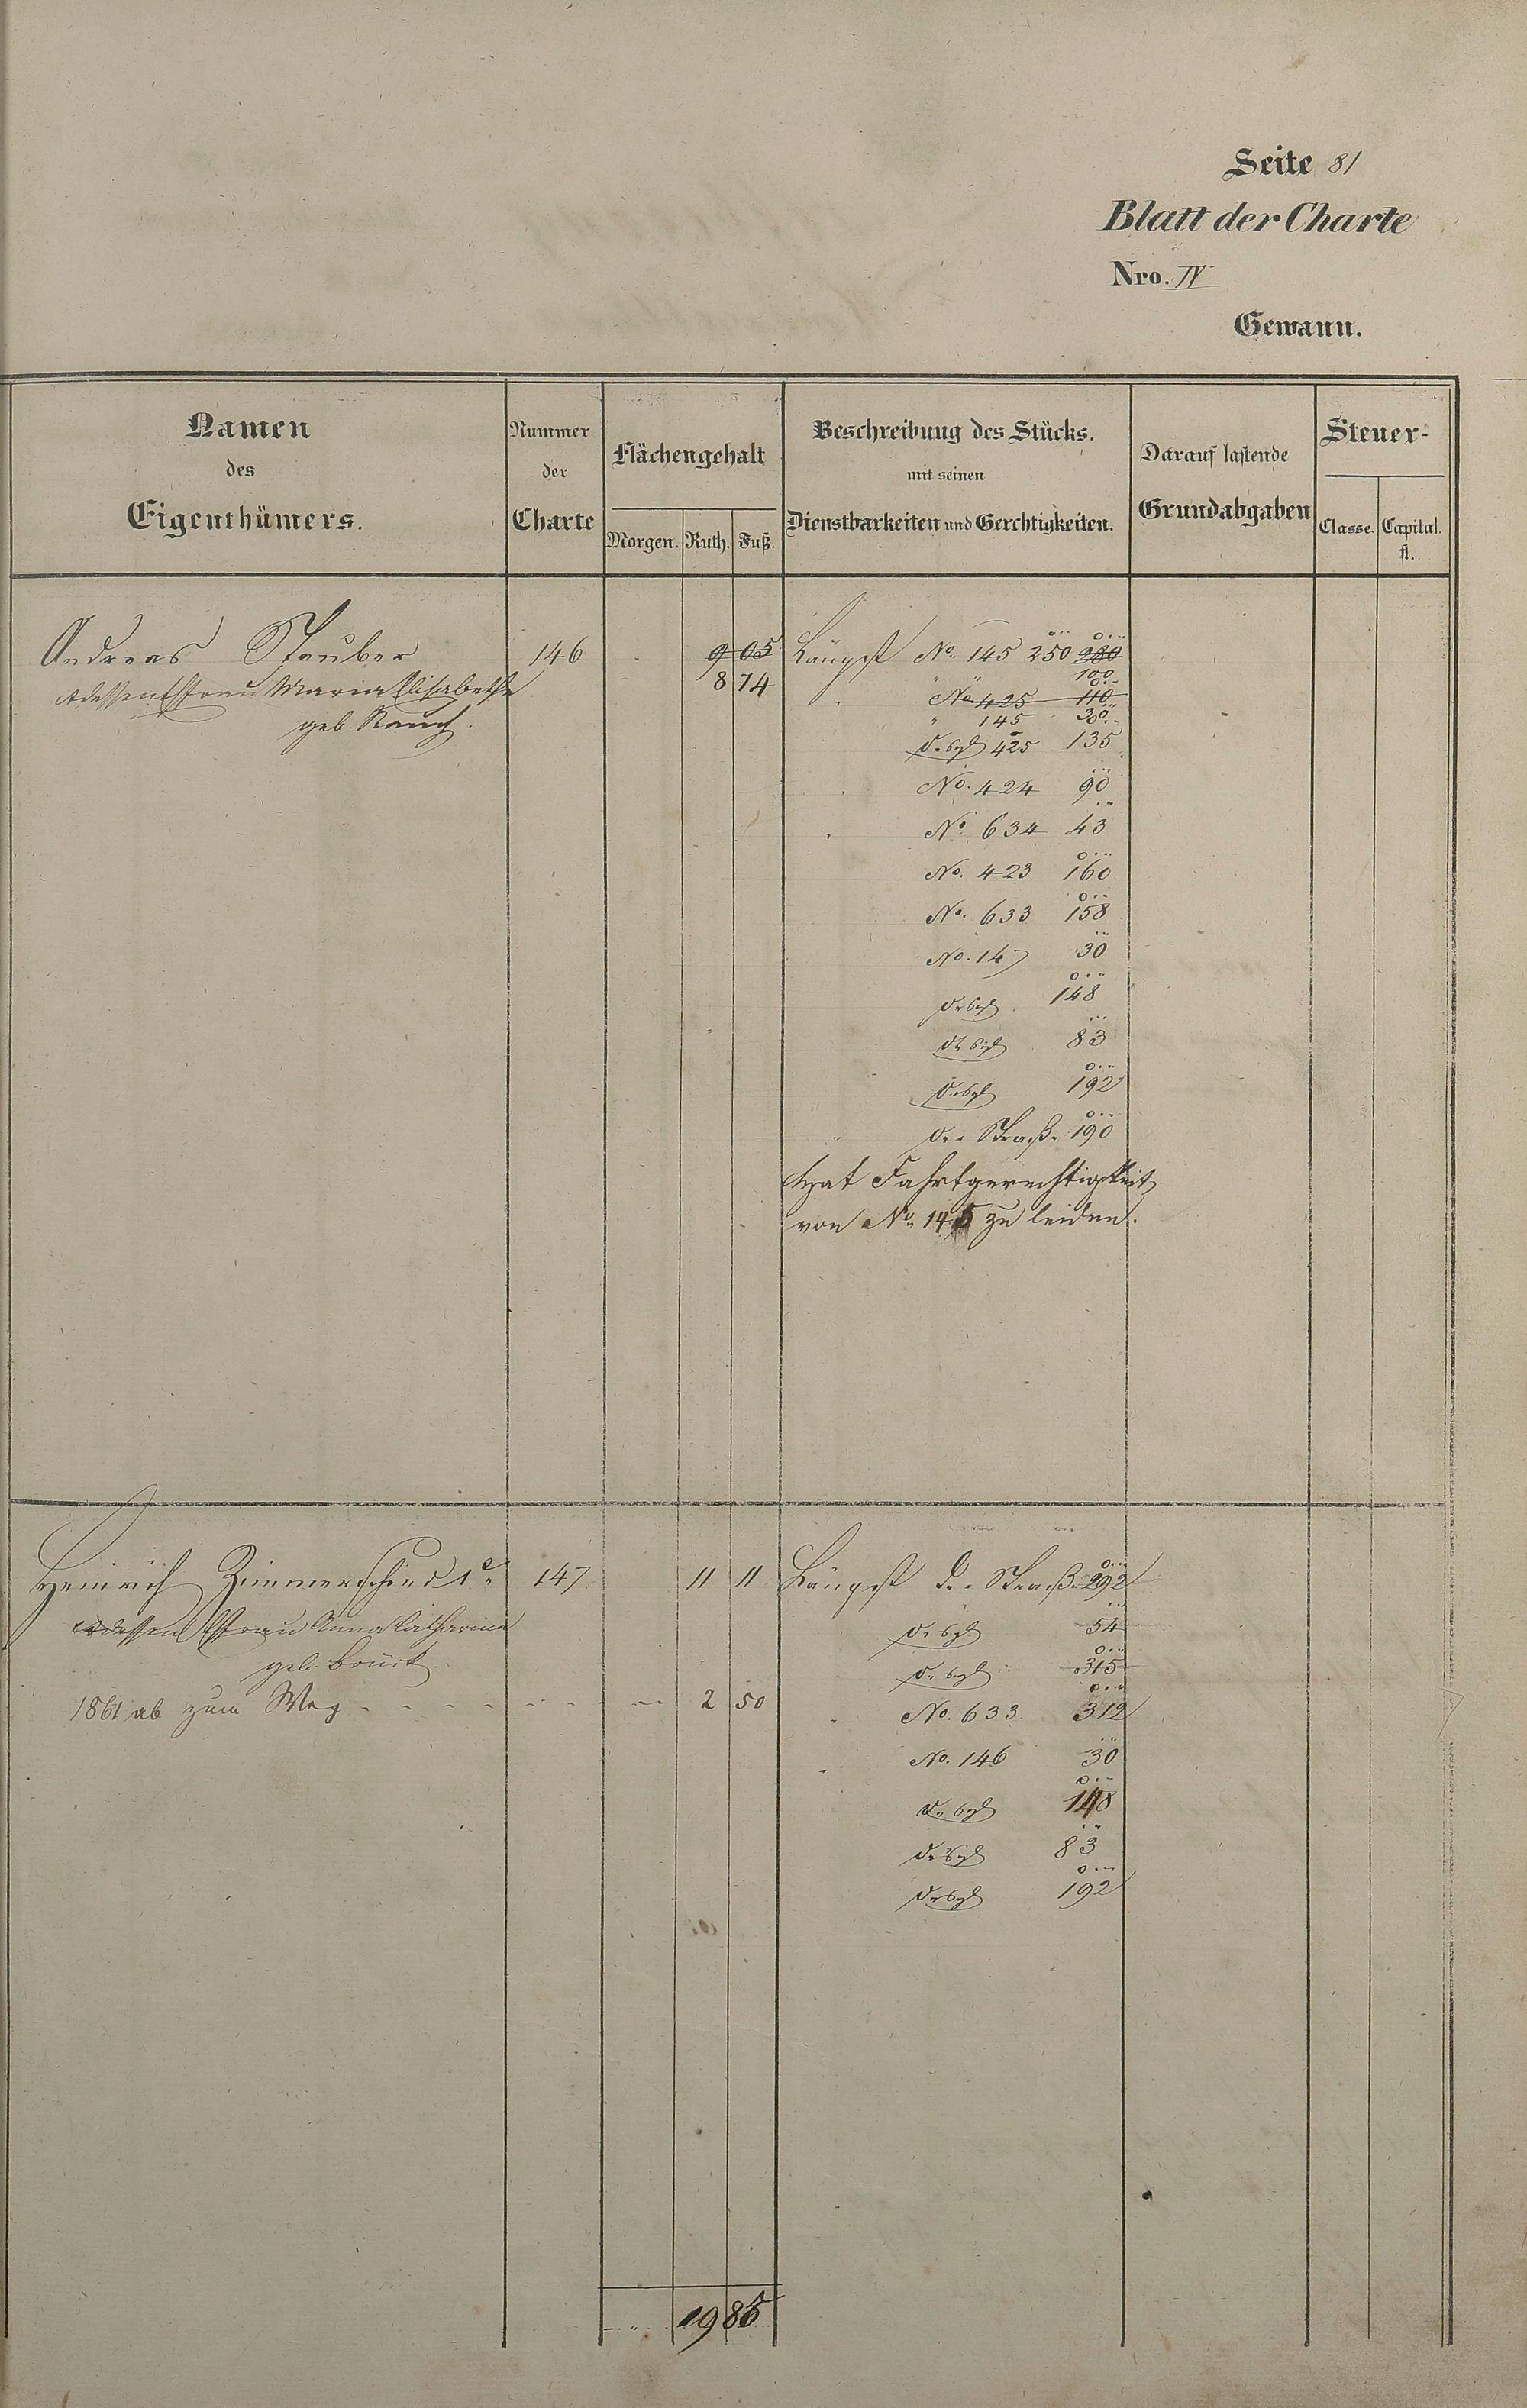 Seite 81
Blatt der Charte
Nro. IV
Gewann.
Namen des Eigenthümers.
Nummer der Charte
Flächengehalt
Morgen. Ruth. Fuß.
Beschreibung des Stücks. mit seinen Dienstbarkeiten und Gerechtigkeiten.
Darauf lastende Grundabgaben
Steuer-
Classe. Capital. fl.
Andreas Stauber 146 9 05 Längst No. 145 250 280
Maria Elisabethe 8 74 100
No 425 110
geb. Rauch. " 145 300
desgl 425 135
No. 424 90
No. 634 43
No. 423 160
No. 633 158
No. 147 30
desgl. 148
desgl 83
desgl 192
" der Straße 190
Hat Fahrtgerechtigkeit
von No. 145 zu leiden.
Heinrich Zimmerschied 1r 147 11 11 Längst der Straße 292
dessen Ehefrau Anna Catharina desgl 54
geb. Brück. desgl 315
1861 ab zum Weg 2 50
No. 633 312
No. 146 30
desgl 148
desgl 83
desgl 192
" 19 85